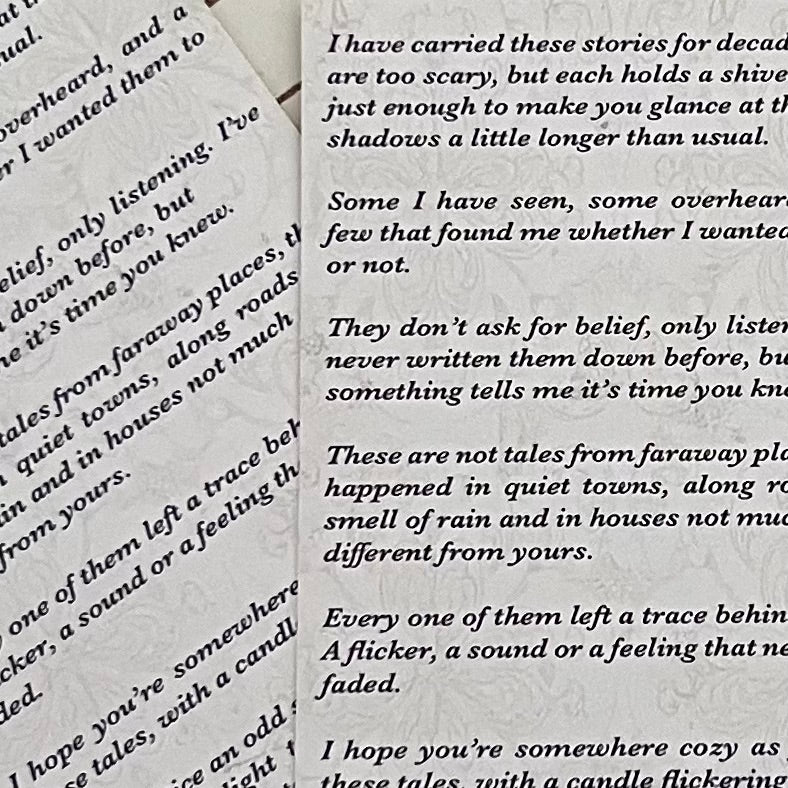 ual.
overheard, and a
er I wanted them to
elief, only listening. I've
down before, but
ne it's time you knew.
tales from faraway places, th
quiet towns, along roads
in and in houses not much
from yours.
one of them left a trace beh
cker, a sound or a feeling th
ded.
I hope you're somewhere
se tales, with a candl
ice an odd
light
I have carried these stories for decad
are too scary, but each holds a shive
just enough to make you glance at th
shadows a little longer than usual.
Some I have seen, some overhear
few that found me whether I wanted
or not.
They don't ask for belief, only listen
never written them down before, bu
something tells me it's time you kn
These are not tales from faraway pla
happened in quiet towns, along ro
smell of rain and in houses not muc
different from yours.
Every one of them left a trace behin
A flicker, a sound or a feeling that ne
faded.
I hope you're somewhere cozy as
these tales, with a candle flickering